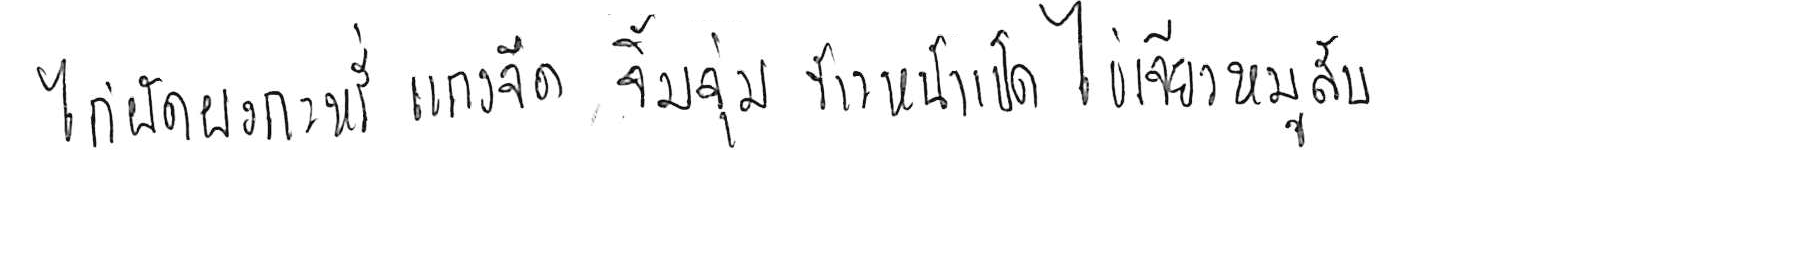 ไก่ผัดผงกะหรี่ แกงจืด จิ้มจุ่ม ข้าวหน้าเป็ด ไข่เจียวหมูสับ